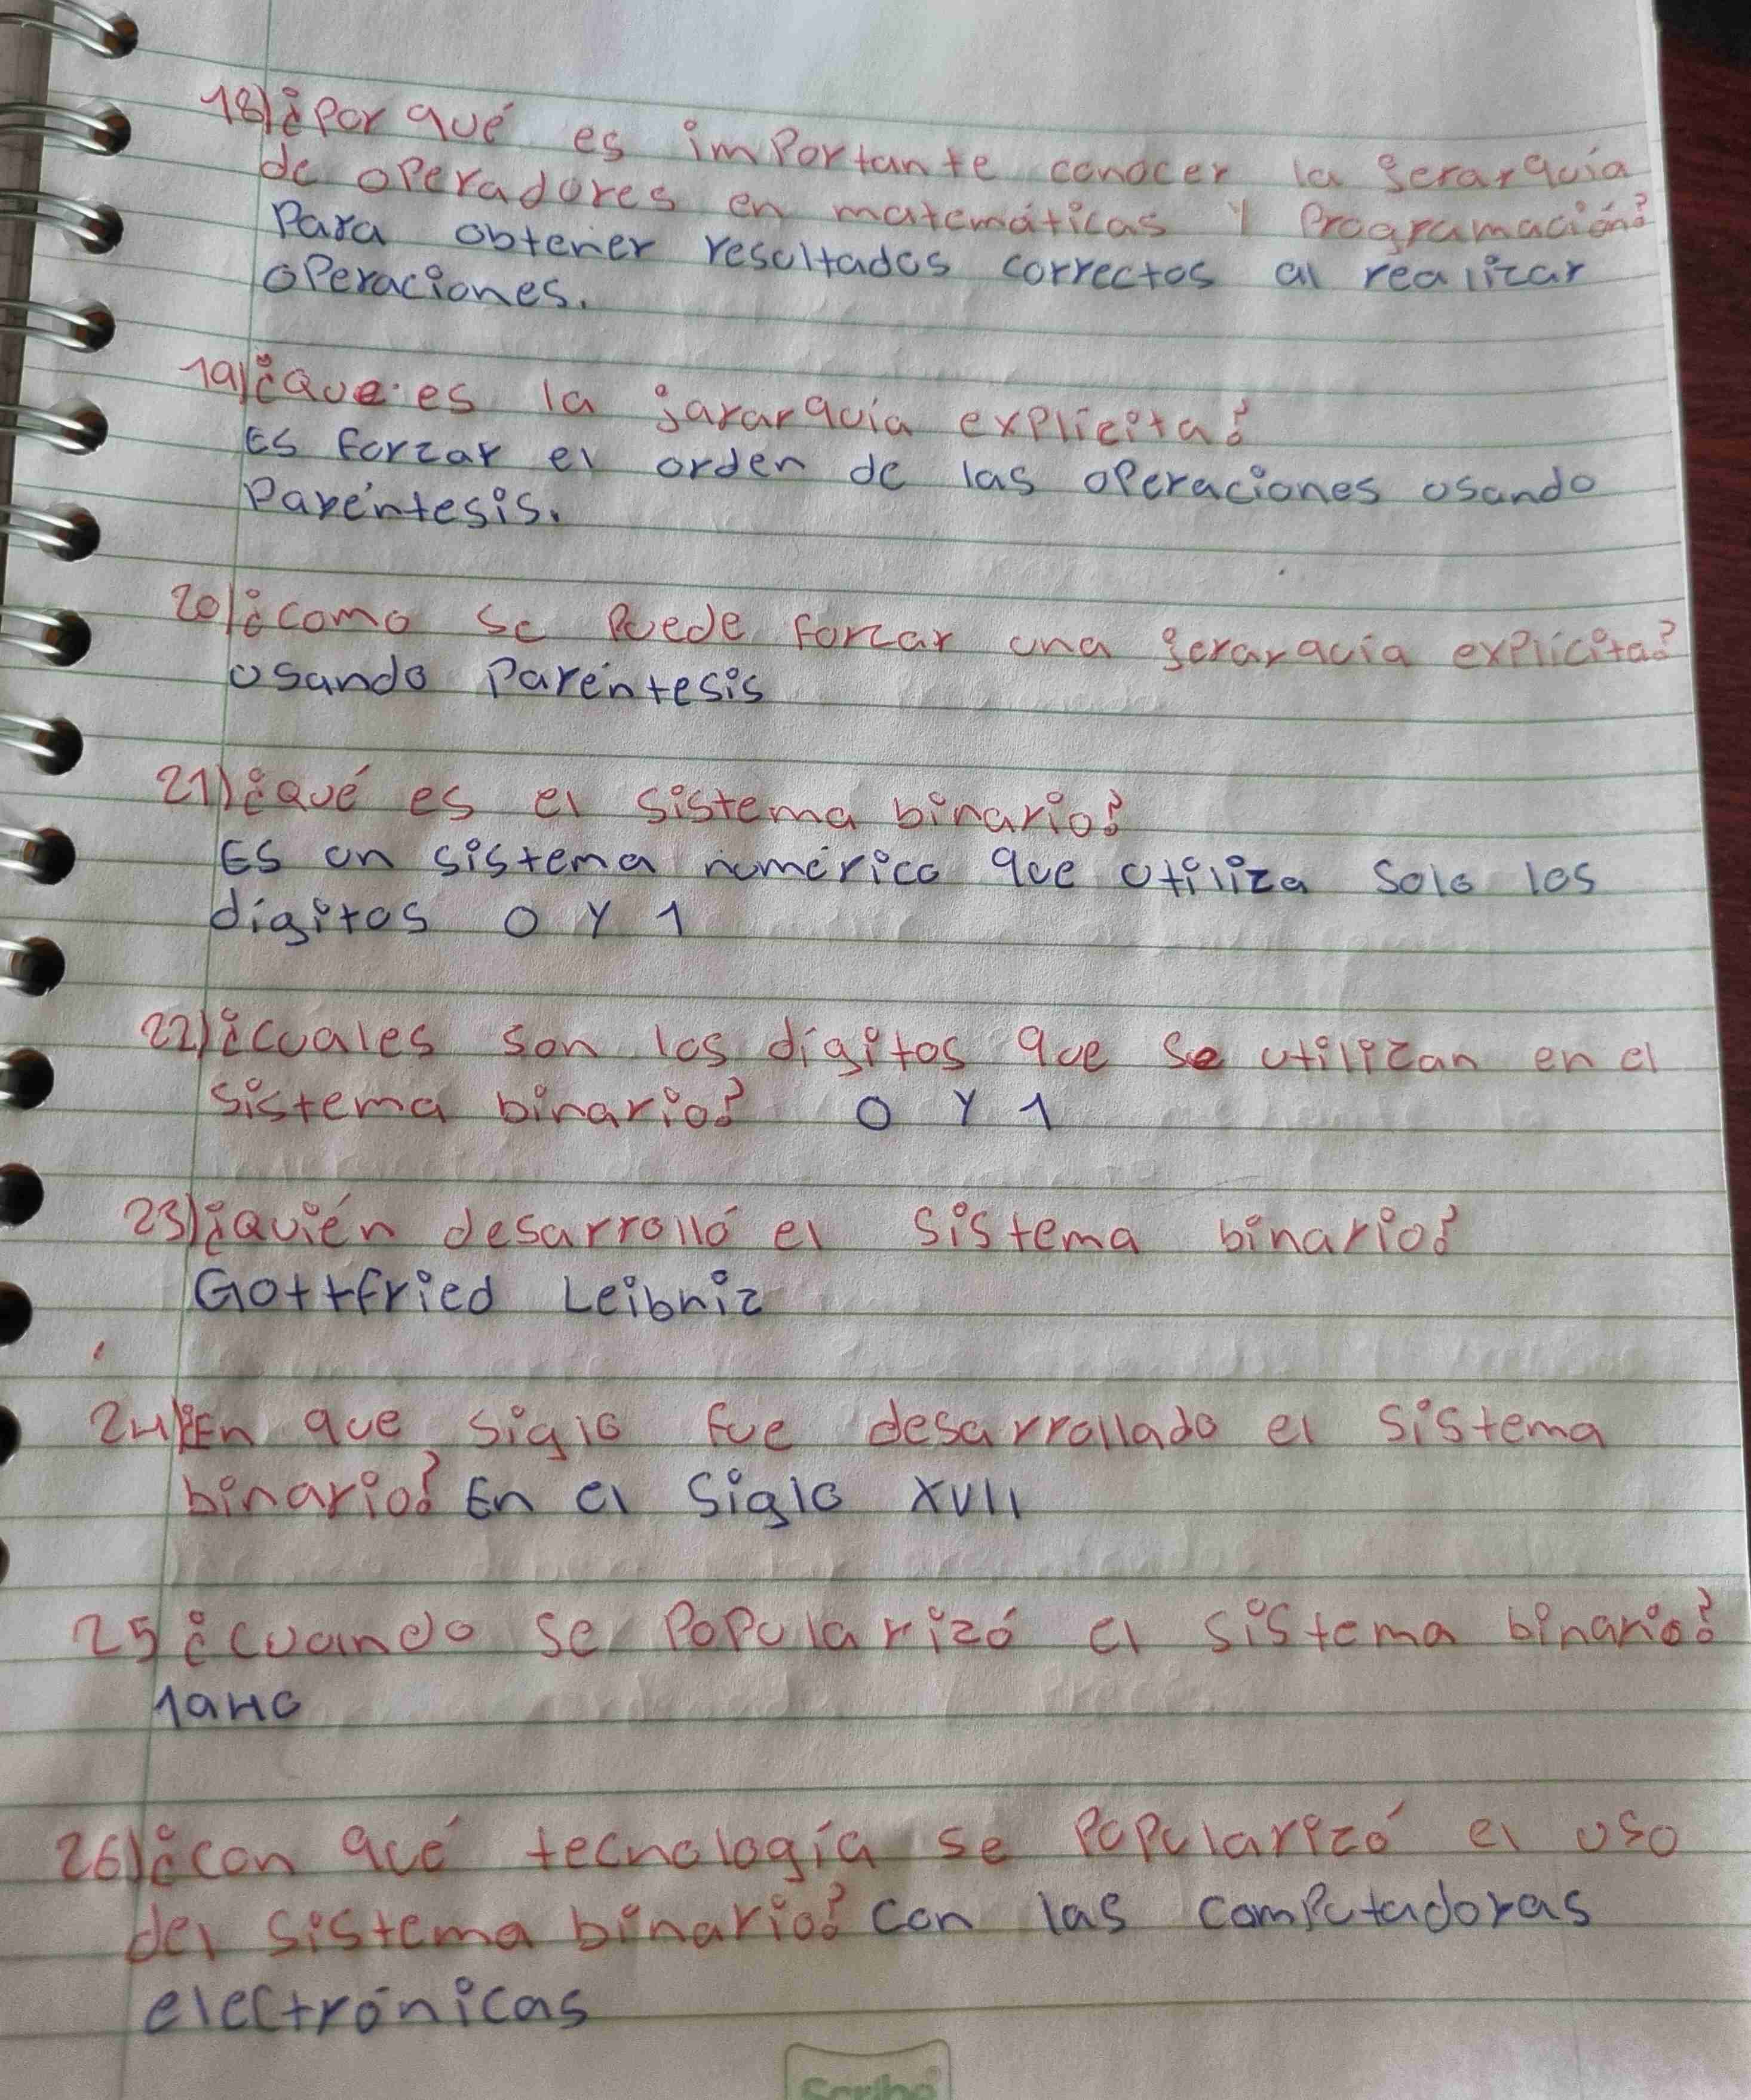 18) ¿Por qué es importante conocer la jerarquía
de operadores en matemáticas y Programación?
Para obtener resultados correctos al realizar
operaciones.
19) ¿Que es la jararquía explicita?
Es forzar el orden de las operaciones usando
Paréntesis.
20) ¿como se Puede forzar una jerarquia explicita?
usando Paréntesis
21) ¿qué es el sistema binario?
Es un sistema numérico que utiliza solo los
digitos 0 y 1
22) ¿cuales son los digitos que se utilizan en el
sistema binario? 0 y 1
23) ¿quién desarrolló el sistema binario?
Gottfried Leibniz
24) ¿En que siglo fue desarrollado el sistema
binario? En el siglo XVII
25 ¿cuando se Popularizó el sistema binario?
1940
26) ¿con qué tecnología se Popularizó el uso
del sistema binario? con las computadoras
electrónicas
Scribe